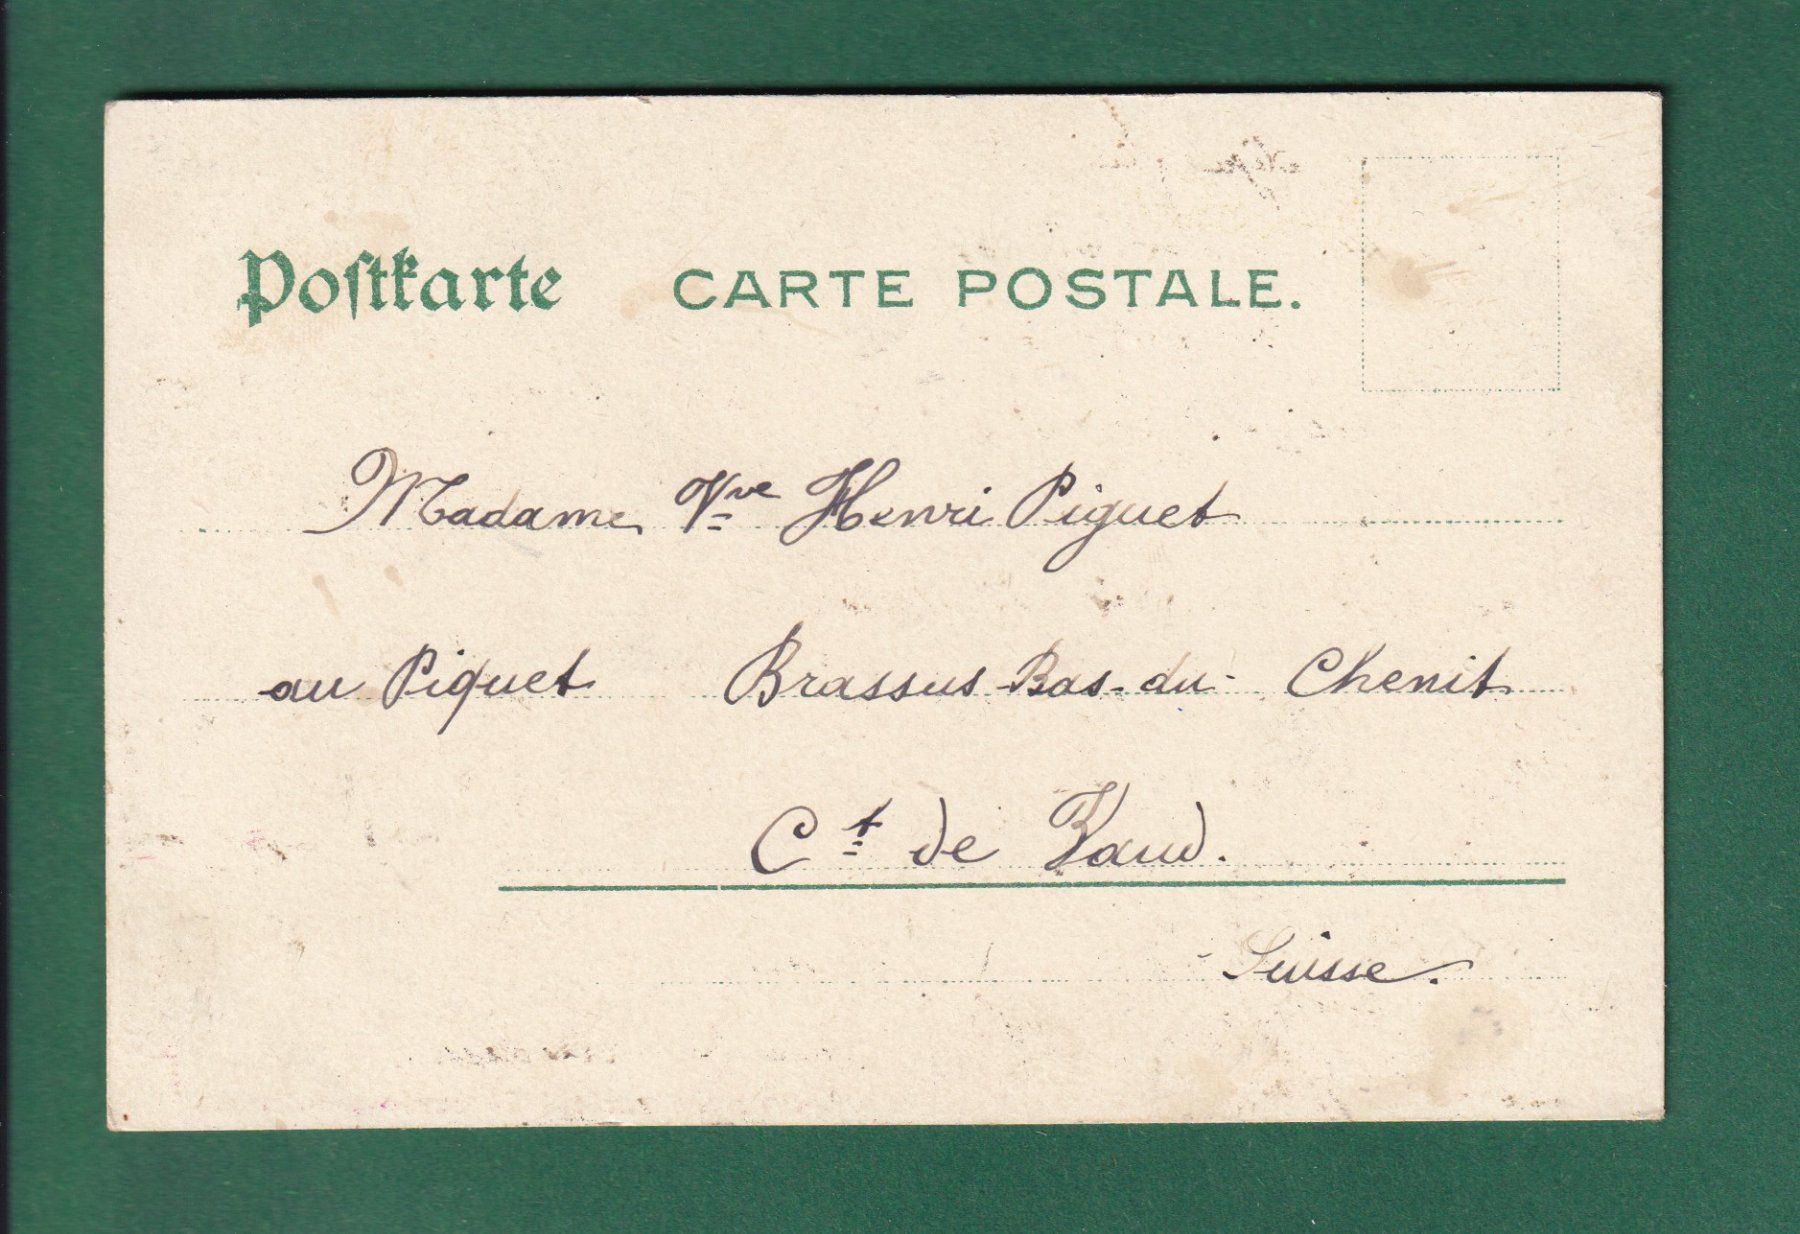 Postkarte CARTE POSTALE.
Madame Vve Henri Piguet
au Piguet Brassus-Bas-du-Chenit
Ct de Vaud.
Suisse.